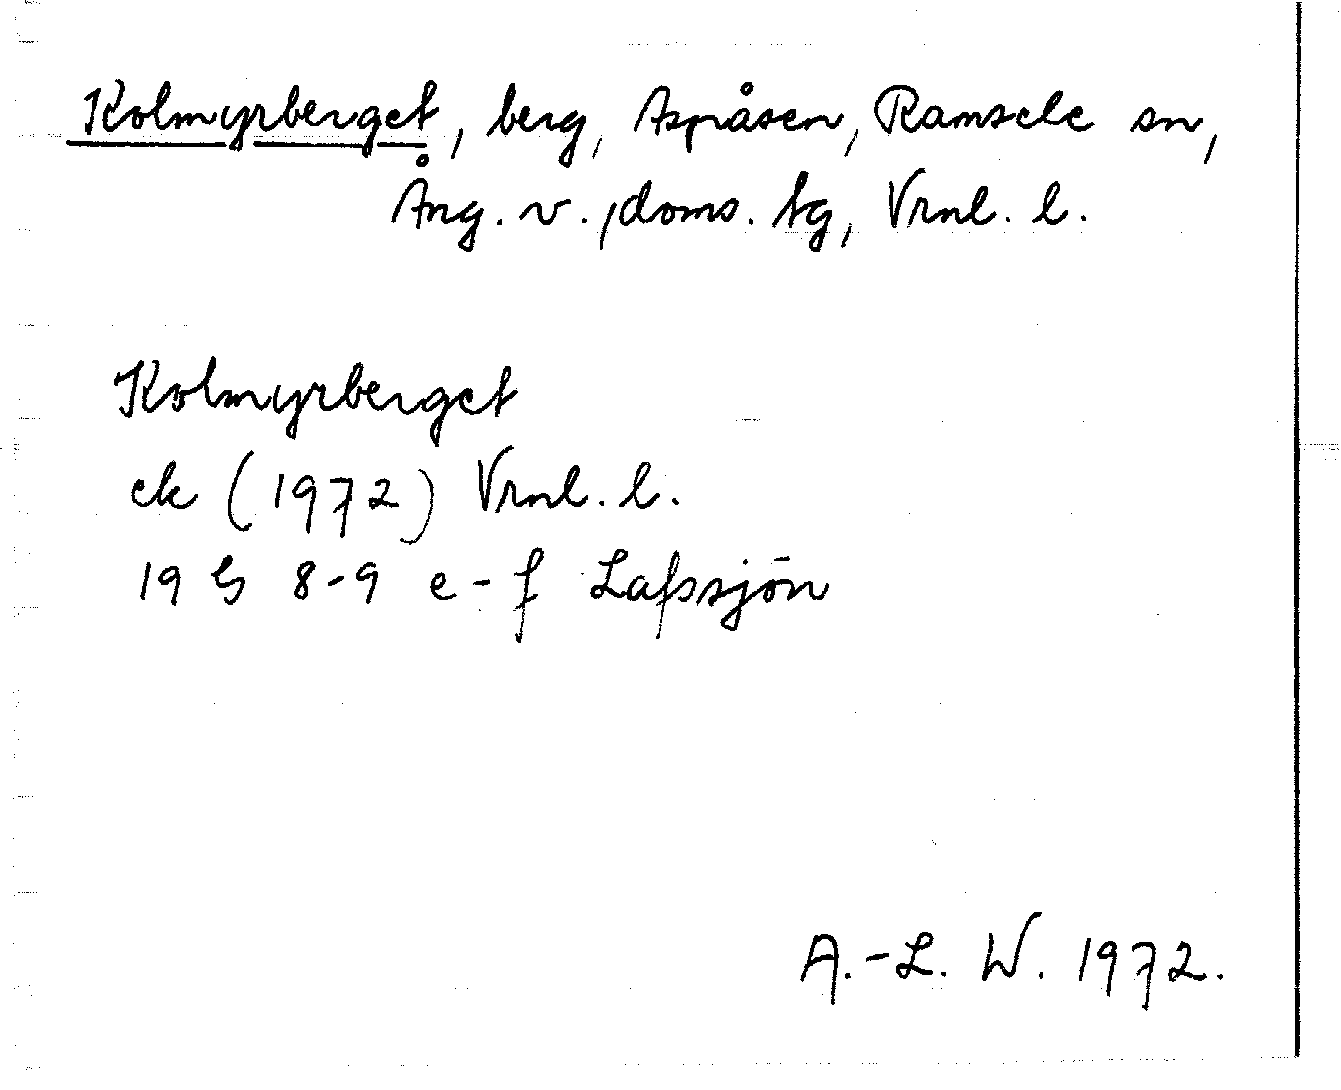 Kolmyrberget, berg, Aspåsen, Ramsele sn,
Ång. v., doms. tg, Vrnl. l.
Kolmyrberget
ek (1972) Vrnl. l.
19 G 8-9 e-f Lafssjön
A.-L. W. 1972.